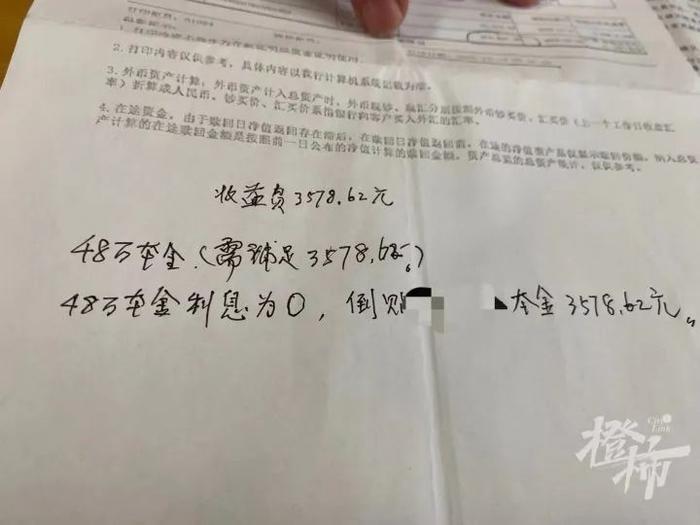 2. 打印内容仅供参考，具体内容以我行计算机系统记载为准。
3. 外币资产计算：外币资产计入总资产时，外币现钞、现汇分别按照外币钞买价、汇买价（上一个工作日收盘汇
率）折算成人民币，钞买价、汇买价系指银行向客户买入外汇的汇率。
4. 在途资金，由于赎回日净值返回存在滞后，在赎回日净值返回前，在途的净值资产总仅显示赎回份额，纳入总资
产计算的在途赎回金额是按照前一日公布的净值计算的赎回金额，资产总览的总资产统计，仅供参考。
收益负3578.62元
48万本金（需补足3578.62。）
48万本金利息为0，倒贴 本金3578.62元。
City Link
橙柿